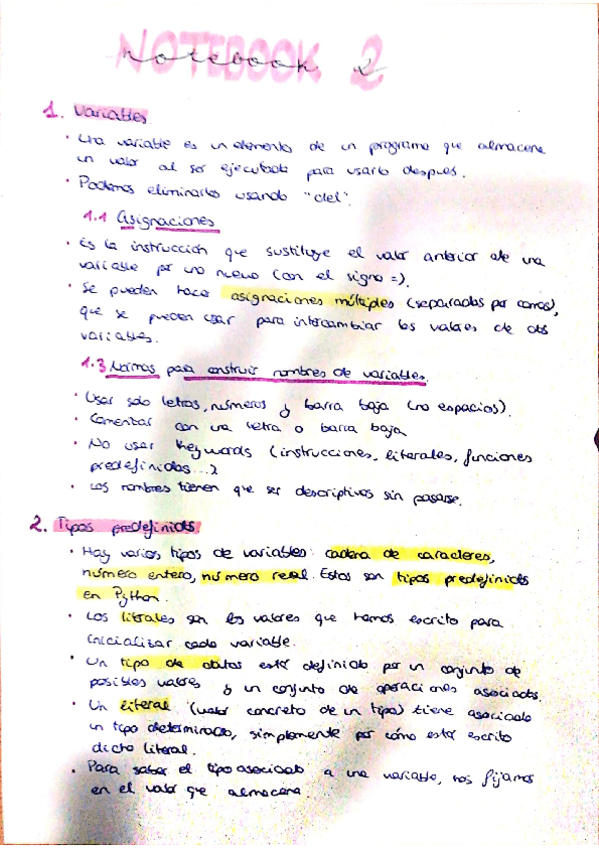 NOTEBOOK 2
notebook 2
1. Variables
· Una variable es un elemento de un programa que almacena
un valor al ser ejecutado para usarlo después.
· Podemos eliminarlas usando "del".
1.1 Asignaciones
· Es la instrucción que sustituye el valor anterior de una
variable por uno nuevo (con el signo =).
· Se pueden hacer asignaciones múltiples (separadas por comas),
que se pueden usar para intercambiar los valores de dos
variables.
1.3 Normas para construir nombres de variables.
· Usar solo letras, números y barra baja (no espacios).
· Comenzar con una letra o barra baja
· No usar keywords (instrucciones, literales, funciones
predefinidas...)
· Los nombres tienen que ser descriptivos sin pasarse.
2. Tipos predefinidos
· Hay varios tipos de variables: cadena de caracteres,
número entero, número real. Estos son tipos predefinidos
en Python.
· Los literales son los valores que hemos escrito para
inicializar cada variable.
· Un tipo de datos está definido por un conjunto de
posibles valores y un conjunto de operaciones asociados.
· Un literal (valor concreto de un tipo) tiene asociado
un tipo determinado, simplemente por cómo está escrito
dicho literal.
· Para saber el tipo asociado a una variable, nos fijamos
en el valor que almacena.